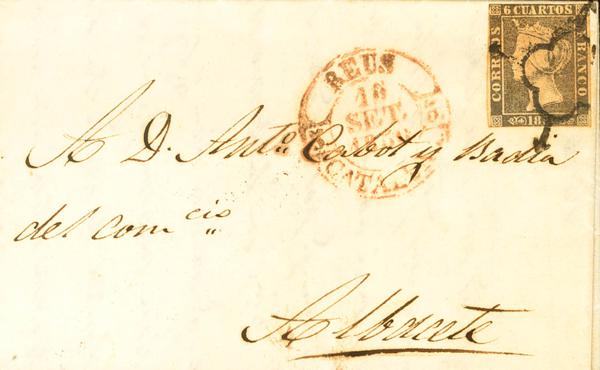 6 CUARTOS
CORREOS
FRANCO
REUS
16
SET.
CATAL
A D. Antº. Cabot y Badia
del comcio
Albacete